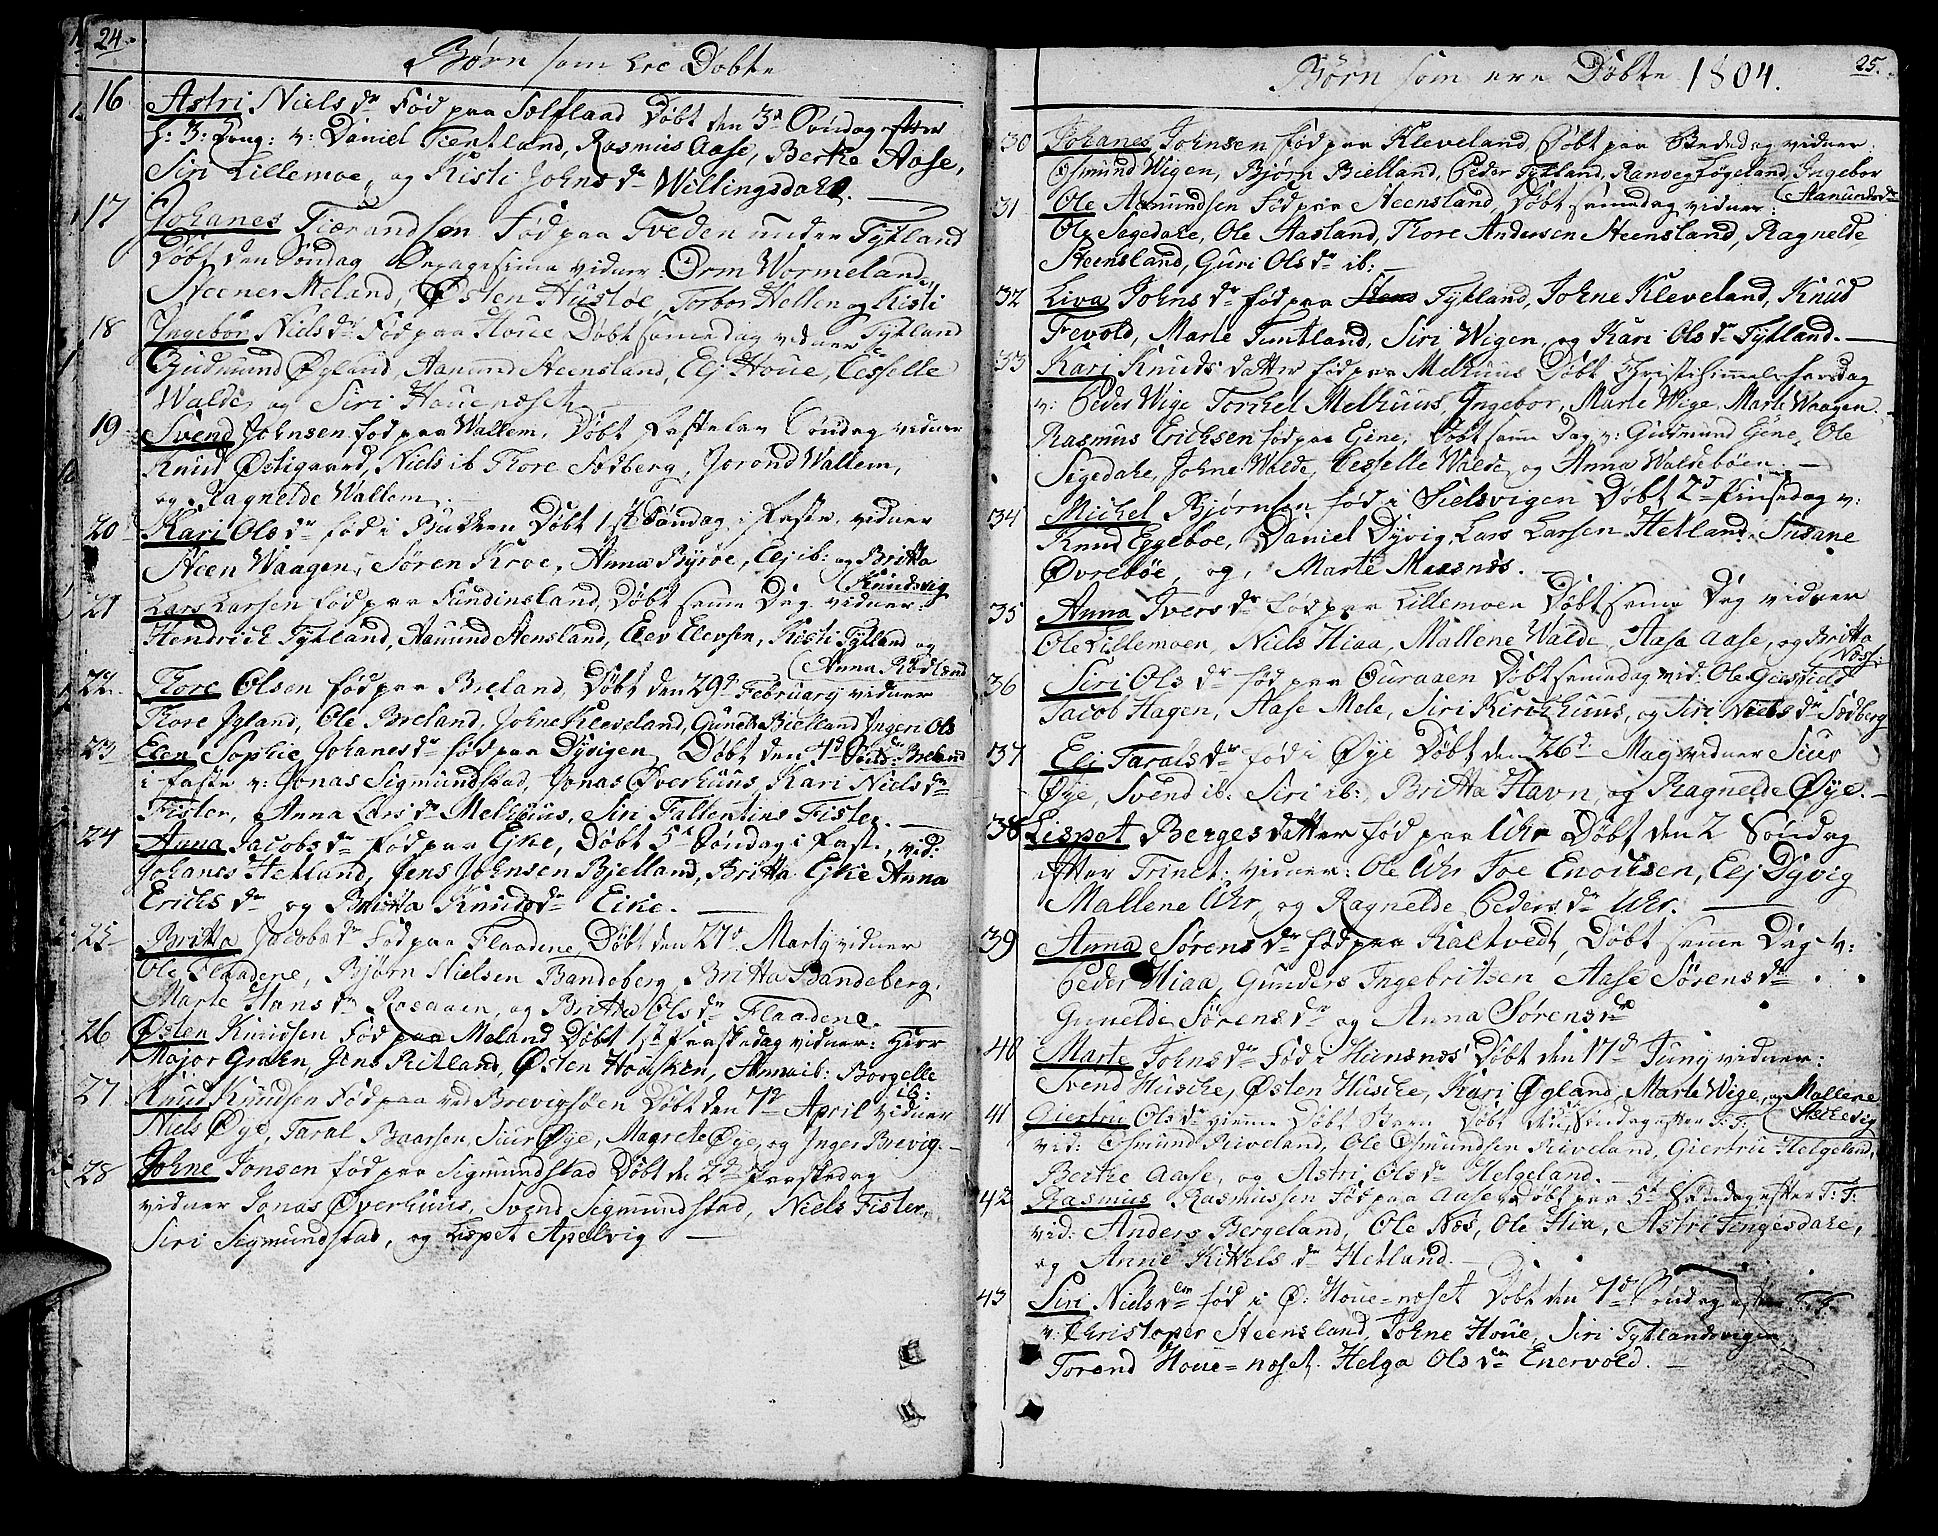 24.
Børn som ere Døbte
16. Astri Niels dr Fød paa Solfland Døbt den 3de Søndag efter
h: 3: kong: v: Daniel Tentland, Rasmus Aase, Berthe Aase,
Siri Lillemoe, og Kisti Johns dr Willingsdahl.
17 Johanes Tiærandsen Fød paa Tveden under Tytland
Døbt den Søndag vidner: Orm Wormeland
Steener Meland, Østen Hustøe, Torbor Hellen og Kisti
Tytland
18 Ingebor Niels dr Fød paa Houe Døbt samedag vidner
Gudmund Øyland, Aanund Steensland, Elj Houe, Cesselle
Walde, og Siri Houenæset
19 Svend Johnsen fød paa Wallem, Døbt Fastelav Søndag vidner
Knud Østigaard, Niels ib Thore Sædberg, Jorond Wallem,
og Ragnelde Wallem.
20 Kari Ols dr fød i Bakken Døbt 1st Søndag i Faste, vidner
Steen Waagen, Søren Kroe, Anna Byrøe, Elj ib: og Britta
Knudsvig
21 Lars Larsen fød paa Fundinsland, Døbt same Dag vidner:
Hendrich Tytland, Aanund Stensland, Elev Elevsen, Kisti Tytland og
Anna Rødland
22. Thore Olsen fød paa Breland, Døbt den 29d February vidner
Thore Jgland, Ole Breland, Johne Kleveland, Gunelde Bielland Ingeri Ols
dr Breland
23 Elen Sophie Johanes dr fød paa Dyvigen Døbt den 4d Sønd:
i faste v: Jonas Sigmundstad, Jonas Øverhuus, Kari Niels dr
Fister, Anna Lars dr Melhuus, Siri Fallentins Fister.
24 Anna Jacobs dr Fød paa Eyke, Døbt 5t Søndag i Faste, vid:
Johanes Hetland, Jens Johnsen Bjelland, Britta Eyke Anna
Erichs dr og Britta Knuds dr Eike.
25 Britta Jacobs dr Fød paa Flaadene Døbt den 27d Marty vidner
Ole Flaadene, Bjørn Nielsen Bandeberg, Britta Bandeberg,
Marte Hans dr Rosaaen, og Britta Ols dr Flaadene.
26 Østen Knudsen Fød paa Meland Døbt 1st Paaskedag vidner: Herr
Major Green, Jens Ritland, Østen Houshen, Anna ib: Borgelle
ib:
27 Knud Knudsen Fød paa ved Brevigsøen Døbt den 7d April vidner
Niels Øye, Taral Baarsen, Siur Øye, Magrete Øye, og Inger Brevig.
28 Johne Jonsen fød paa Sigmundstad Døbt de 2d Paaskedag
vidner Jonas Øverhuus, Svend Sigmundstad, Niels Fister,
Siri Sigmundstad, og Lispet Apelvig
25.
Børn som ere Døbte 1804.
30 Johanes Johnsen fød paa Kleveland, Døbt paa Bededag vidner:
Osmund Wigen, Bjørn Bielland, Peder Tytland, Ranveg Føgeland, Ingebor
Aanunds dr
31 Ole Aamundsen Fød paa Steensland, Døbt samedag vidner:
Ole Sagedahl, Ole Aasland, Thore Andersen Steensland, Ragnelde
Steensland, Guri Ols dr ib:
32 Liva Johns dr fød paa Tytland, Johne Kleveland, Knud
Fevold, Marte Tuntland, Siri Wigen, og Kari Ols dr Tytland.
33 Kari Knuds datter fød paa Melhuus Døbt Christi himmelfarsdag
v: Peder Wige Torchel Melhuus, Ingebor, Marte Wige, Marte Waagen.
Rasmus Erichsen fød paa Eine, Døbt same Dag v: Gudmund Eine, Ole
Sigedahl, Johne Walde, Cesselle Walde og Anna Waldebøen.
34 Michel Bjørnsen fød i Sielsvigen Døbt 2d Pinsedag v:
Knud Eggeboe, Daniel Dyvig, Lars Larsen Hetland, Susane
Øvrebøe, og, Marte Musnæs.
35 Anna Ivers dr fød paa Lillemoen Døbt same Dag vidner
Ole Lillemoen, Niels Hiaa, Mallene Walde, Aasa Aase, og Britta
Næss:
36 Siri Ols dr fød paa Ouraaen Døbt samedag vid: Ole
Jacob Hagen, Aase Mele, Siri Kirchhuus, og Siri Niels dr Sædberg
37 Elj Tarals dr fød i Øye Døbt den 26d: May vidner Siur
Øye, Svend ib: Siri ib: Britta Havn, og Ragnelde Øye.
38 Lispet Berges datter fød paa Uhr Døbt den 2 Søndag
efter Trinet: vidner: Ole Uhr Toe Enochsen, Elj Dyvig
Mallene Uhr, og Ragnelde Peders dr Uhr.
39 Anna Sørens dr fød paa Kaltvedt, Døbt same Dag v:
Peder Hiaa, Gunders Ingebritsen Aase Sørens dr
Gunelde Sørens dr og Anna Sørens dr
40 Marte Johns dr Fød i Hunsnæs Døbt den 17d Juny vidner:
Svend Husche, Østen Husche, Kari Øgland, Marte Wige, og Mallene
41 Giertru Ols dr Døbt Døbt Søndag efter T: T:
vid: Osmund Riveland, Ole Osmundsen Riveland, Giertrue Helgeland,
Berthe Aase, og Astri Ols dr Helgeland.
42 Rasmus Rasmussen Fød paa Aase Døbt paa 5t Søndag efter T: T:
vid: Anders Bergeland, Ole Næs, Ole Hia, Astri Tengesdahl,
og Anne Kittels dr Hetland.
43 Siri Niels dr fød i Ø: Houe=næset Døbt den 7d Søndag
v: Christoper Steensland, Johne Houe, Siri Tytlandsvigen
Torend Houe=næset Helga Ols dr Enervold.